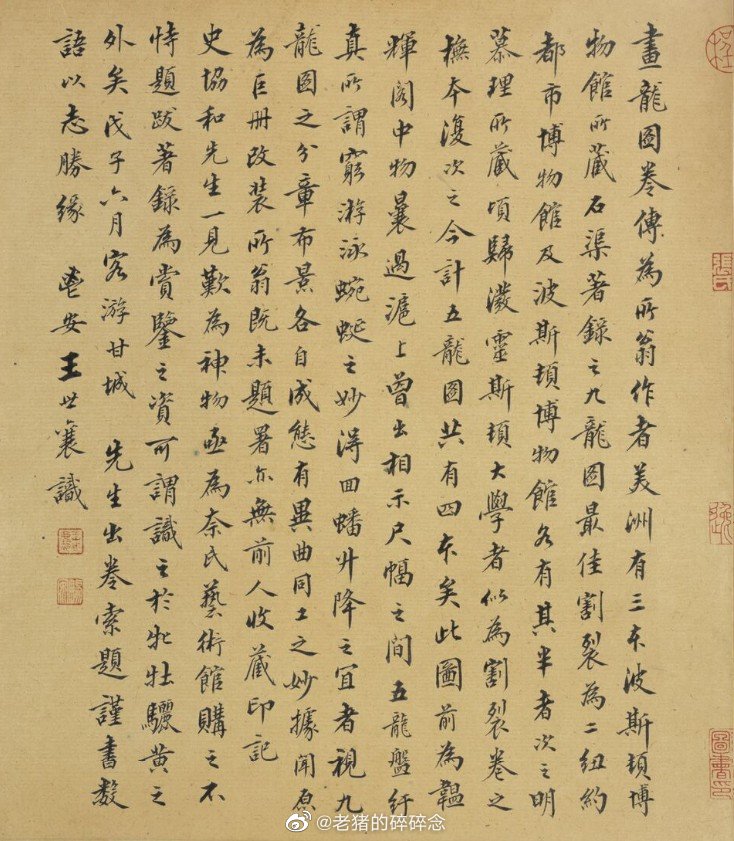 畫龍圖卷傳為所翁作者美洲有三本波斯頓博
物館所藏石渠著錄之九龍圖最佳割裂為二紐約
都市博物館及波斯頓博物館各有其半者次之明
慕理所藏頃歸潑靈斯頓大學者似為割裂卷之
撫本復次之今計五龍圖共有四本矣此圖前為韞
輝閣中物曩過滬上曾出相示尺幅之間五龍盤紆
真所謂窮游泳蜿蜒之妙得回蟠升降之宜者視九
龍圖之分章布景各自成態有異曲同工之妙據聞原
為巨冊改裝所翁既未題署亦無前人收藏印記
史協和先生一見歎為神物亟為奈氏藝術館購之不
恃題跋著錄為賞鑒之資可謂識之於牝牡驪黃之
外矣戊子六月客游甘城 先生出卷索題謹書數
語以志勝緣 鬯安王世襄識
@老猪的碎碎念